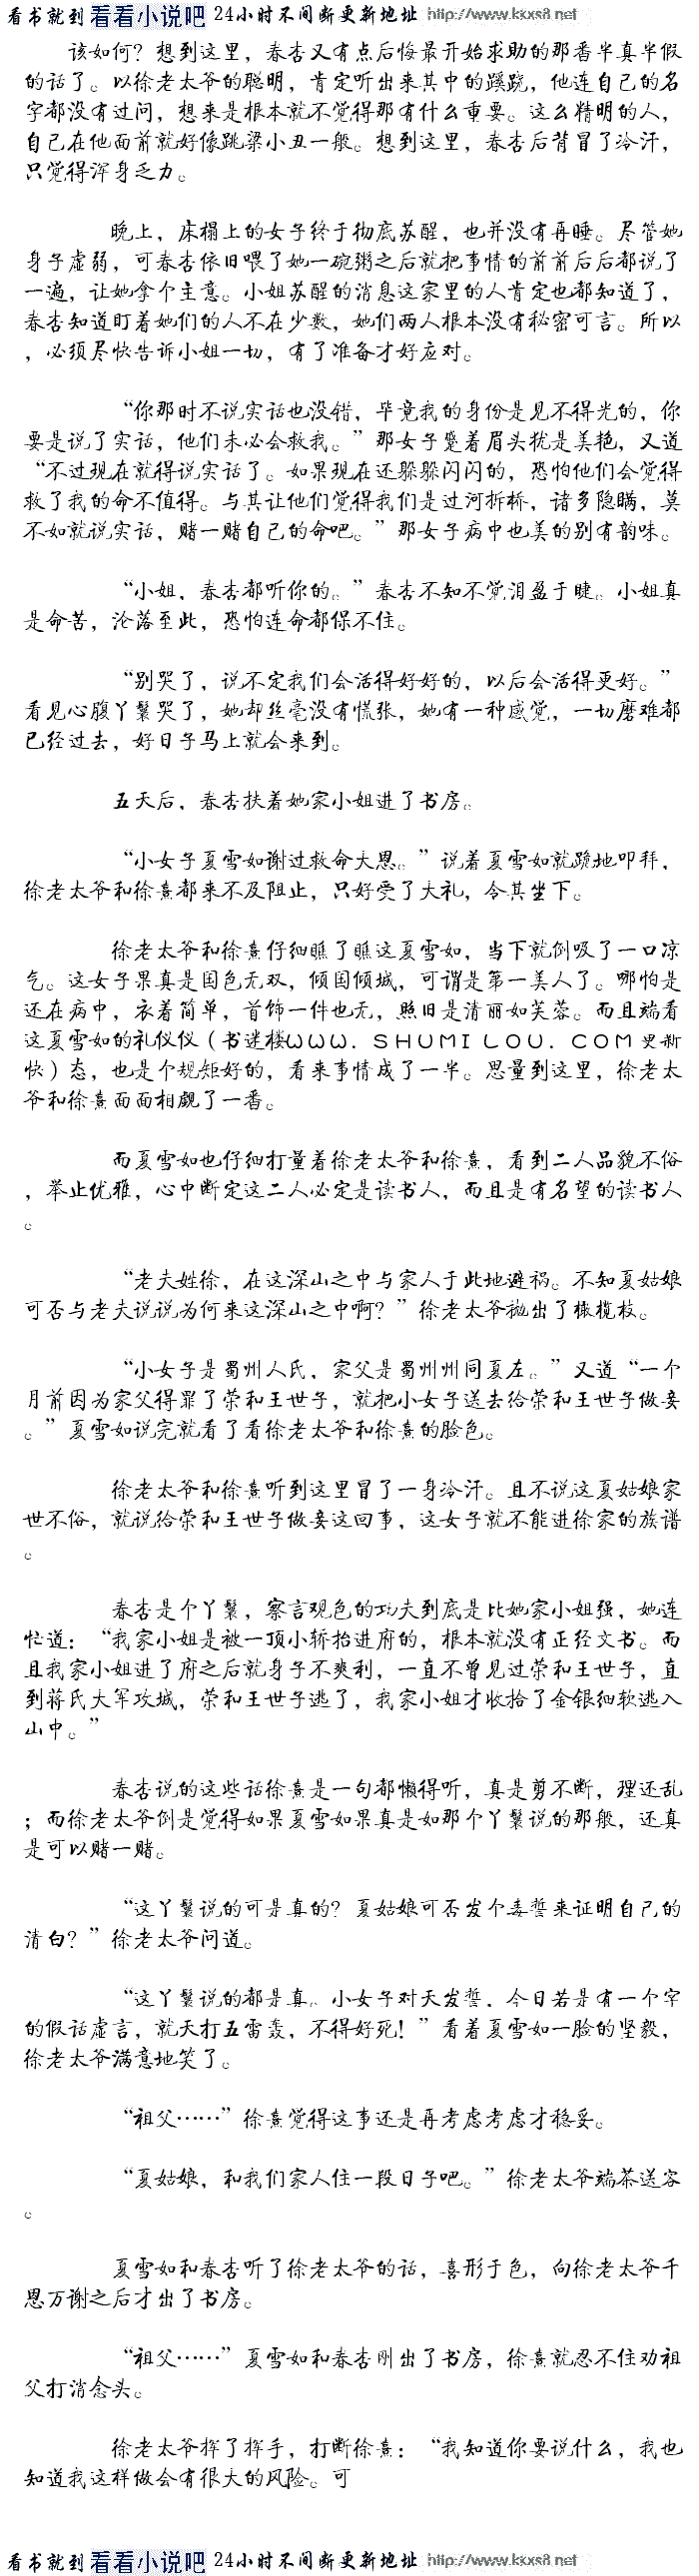 看书就到 看看小说吧 24小时不间断更新地址 http://www.kkxs8.net
该如何？想到这里，春杏又有点后悔最开始求助的那番半真半假
的话了。以徐老太爷的聪明，肯定听出来其中的蹊跷，他连自己的名
字都没有过问，想来是根本就不觉得那有什么重要。这么精明的人，
自己在他面前就好像跳梁小丑一般。想到这里，春杏后背冒了冷汗，
只觉得浑身乏力。
晚上，床榻上的女子终于彻底苏醒，也并没有再睡。尽管她
身子虚弱，可春杏依旧喂了她一碗粥之后就把事情的前前后后都说了
一遍，让她拿个主意。小姐苏醒的消息这家里的人肯定也都知道了，
春杏知道盯着她们的人不在少数，她们两人根本没有秘密可言。所以
，必须尽快告诉小姐一切，有了准备才好应对。
“你那时不说实话也没错，毕竟我的身份是见不得光的，你
要是说了实话，他们未必会救我。”那女子蹙着眉头犹是美艳，又道
“不过现在就得说实话了。如果现在还躲躲闪闪的，恐怕他们会觉得
救了我的命不值得。与其让他们觉得我们是过河拆桥，诸多隐瞒，莫
不如就说实话，赌一赌自己的命吧。”那女子病中也美的别有韵味。
“小姐，春杏都听你的。”春杏不知不觉泪盈于睫。小姐真
是命苦，沦落至此，恐怕连命都保不住。
“别哭了，说不定我们会活得好好的，以后会活得更好。”
看见心腹丫鬟哭了，她却丝毫没有慌张，她有一种感觉，一切磨难都
已经过去，好日子马上就会来到。
五天后，春杏扶着她家小姐进了书房。
“小女子夏雪如谢过救命大恩。”说着夏雪如就跪地叩拜，
徐老太爷和徐熹都来不及阻止，只好受了大礼，令其坐下。
徐老太爷和徐熹仔细瞧了瞧这夏雪如，当下就倒吸了一口凉
气。这女子果真是国色无双，倾国倾城，可谓是第一美人了。哪怕是
还在病中，衣着简单，首饰一件也无，照旧是清丽如芙蓉。而且端看
这夏雪如的礼仪仪（书迷楼ωωω．ＳＨＵＭＩＬＯＵ．ＣＯＭ更新
快）态，也是个规矩好的，看来事情成了一半。思量到这里，徐老太
爷和徐熹面面相觑了一番。
而夏雪如也仔细打量着徐老太爷和徐熹，看到二人品貌不俗
，举止优雅，心中断定这二人必定是读书人，而且是有名望的读书人
。
“老夫姓徐，在这深山之中与家人于此地避祸。不知夏姑娘
可否与老夫说说为何来这深山之中啊？”徐老太爷抛出了橄榄枝。
“小女子是蜀州人氏，家父是蜀州州同夏左。”又道“一个
月前因为家父得罪了荣和王世子，就把小女子送去给荣和王世子做妾
。”夏雪如说完就看了看徐老太爷和徐熹的脸色。
徐老太爷和徐熹听到这里冒了一身冷汗。且不说这夏姑娘家
世不俗，就说给荣和王世子做妾这回事，这女子就不能进徐家的族谱
。
春杏是个丫鬟，察言观色的功夫到底是比她家小姐强，她连
忙道：“我家小姐是被一顶小轿抬进府的，根本就没有正经文书。而
且我家小姐进了府之后就身子不爽利，一直不曾见过荣和王世子，直
到蒋氏大军攻城，荣和王世子逃了，我家小姐才收拾了金银细软逃入
山中。”
春杏说的这些话徐熹是一句都懒得听，真是剪不断，理还乱
；而徐老太爷倒是觉得如果夏雪如果真是如那个丫鬟说的那般，还真
是可以赌一赌。
“这丫鬟说的可是真的？夏姑娘可否发个毒誓来证明自己的
清白？”徐老太爷问道。
“这丫鬟说的都是真。小女子对天发誓，今日若是有一个字
的假话虚言，就天打五雷轰，不得好死！”看着夏雪如一脸的坚毅，
徐老太爷满意地笑了。
“祖父……”徐熹觉得这事还是再考虑考虑才稳妥。
“夏姑娘，和我们家人住一段日子吧。”徐老太爷端茶送客
。
夏雪如和春杏听了徐老太爷的话，喜形于色，向徐老太爷千
恩万谢之后才出了书房。
“祖父……”夏雪如和春杏刚出了书房，徐熹就忍不住劝祖
父打消念头。
徐老太爷挥了挥手，打断徐熹：“我知道你要说什么，我也
知道我这样做会有很大的风险。可
看书就到 看看小说吧 24小时不间断更新地址 http://www.kkxs8.net